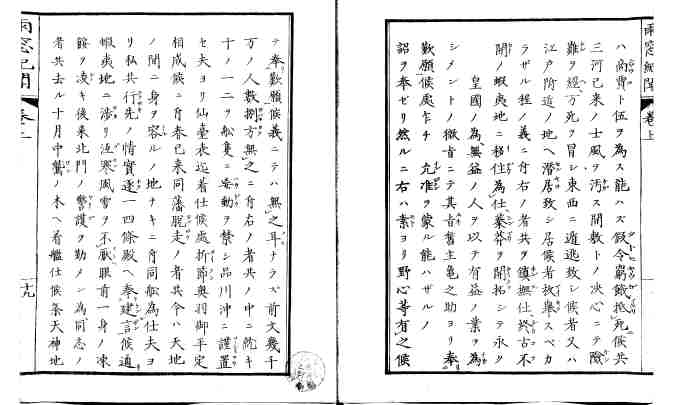 雨窓紀聞 巻上
ハ商賈ト伍ヲ為ス能ハズ仮令窮餓抵死候共
三河已来ノ士風ヲ汚ス間敷トノ決心ニテ険
難ヲ経万死ヲ冒シ東西ニ遁逃致シ候者又ハ
江戸附近ノ地ヘ潜居致シ居候者枚挙スベカ
ラザル程ノ義ニ付右ノ者共ヲ鎮撫仕終古不
開ノ蝦夷地ニ移住為仕蓁莽ヲ開拓シテ永ク
皇国ノ為無益ノ人ヲ以テ有益ノ業ヲ為
シメントノ微旨ニテ其旨旧主亀之助ヨリ奉
歎願候処乍チ 允准ヲ蒙ル能ハザルノ
詔ヲ奉ゼリ然ルニ右ハ素ヨリ野心等有之候
テ奉歎願候義ニテハ無之耳ナラズ前文幾千
万ノ人数捌方無之ニ付右ノ者共ノ中ニ就キ
十ノ一二ヲ船隻ニ妄動ヲ禁シ品川沖ニ謹置
セ夫ヨリ仙台表迄着仕候処折節奥羽御平定
相成候ニ付春已来同藩脱走ノ者共今ハ天地
ノ間ニ身ヲ容ルノ地ナキニ付同船為仕夫ヨ
リ私共行先ノ情実逐一四條殿ヘ奉建言候通
蝦夷地ニ渉リ沍寒風雪ヲ不厭眼前一身ノ凍
餒ヲ凌キ後来北門ノ警護ヲ勤メン為同志ノ
者共去ル十月中鷲ノ木ヘ着艦仕候条天神地
雨窓紀聞 巻上
十九